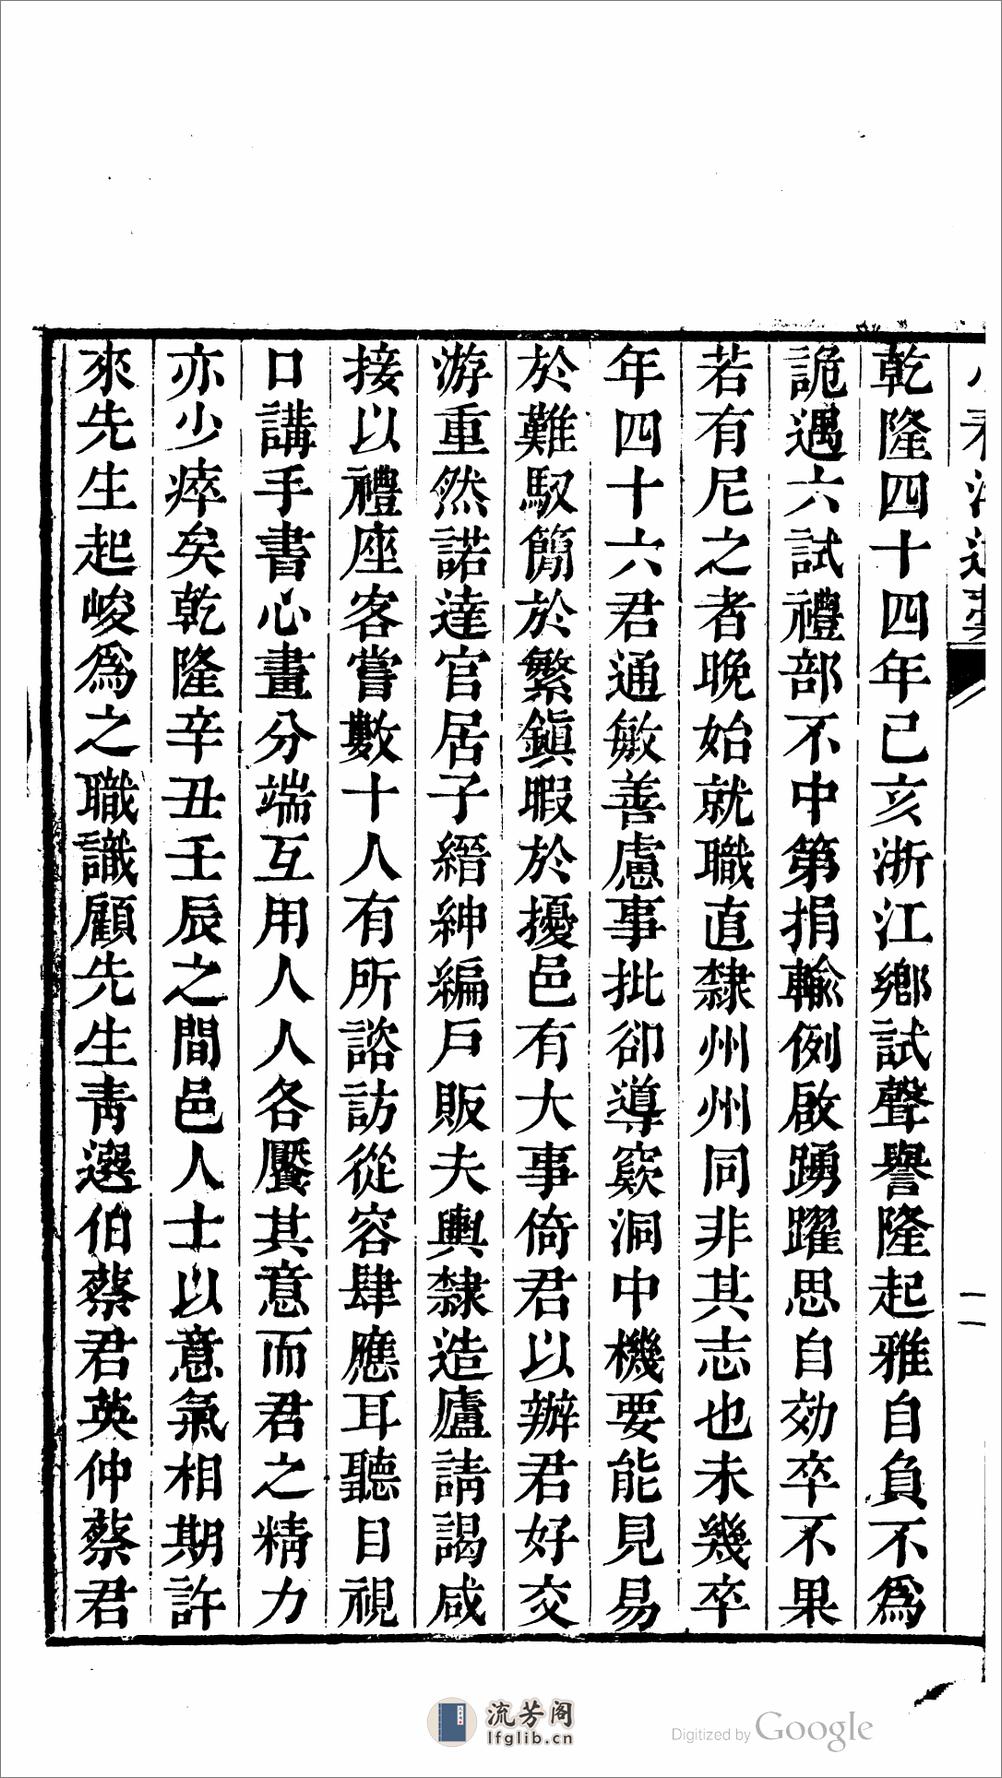 乾隆四十四年己亥浙江鄉試聲譽隆起雅自負不為
詭遇六試禮部不中第捐輸例啟踴躍思自効卒不果
若有尼之者晚始就職直隸州州同非其志也未幾卒
年四十六君通敏善慮事批卻導窾洞中機要能見易
於難馭簡於繁鎮暇於擾邑有大事倚君以辦君好交
游重然諾達官居子縉紳編戶販夫輿隸造廬請謁咸
接以禮座客嘗數十人有所諮訪從容肆應耳聽目視
口講手書心畫分端互用人人各饜其意而君之精力
亦少瘁矣乾隆辛丑壬辰之間邑人士以意氣相期許
來先生起峻為之職識顧先生青選伯蔡君英仲蔡君
流芳阁
lfglib.cn
Digitized by Google